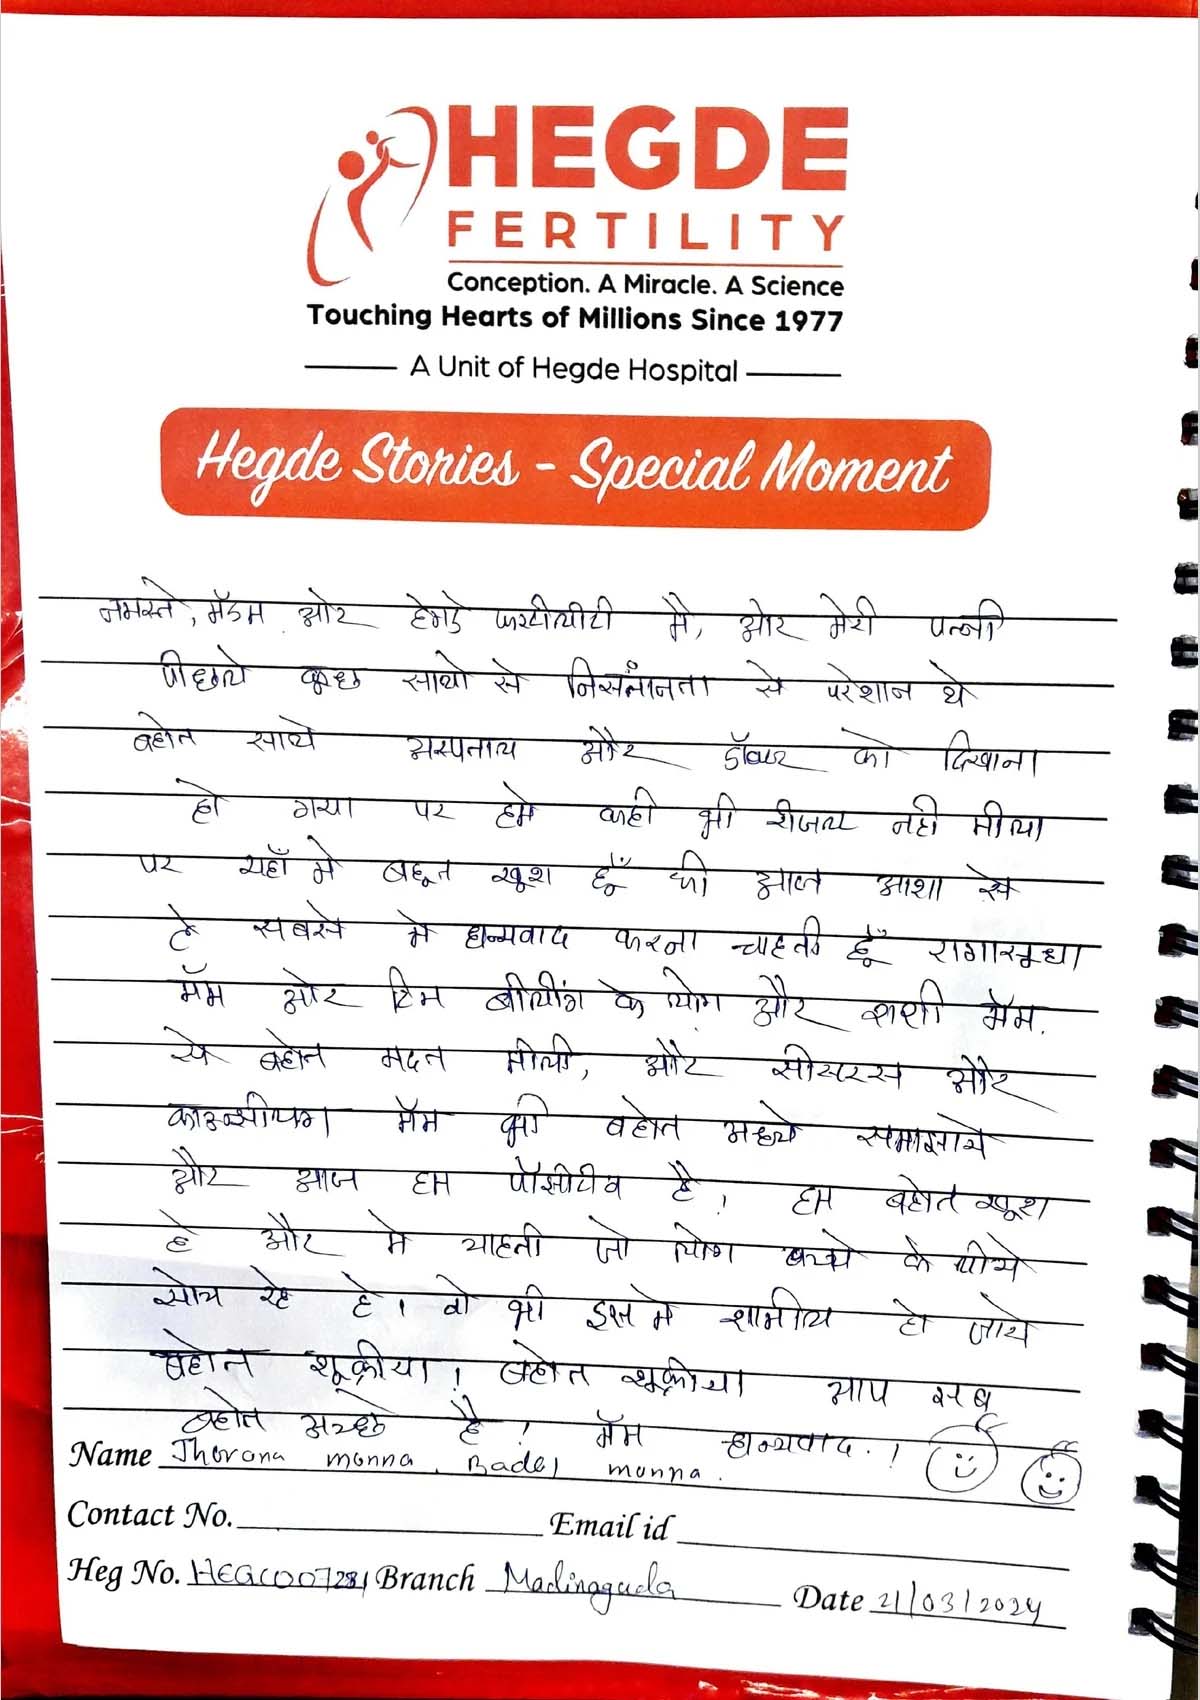 HEGDE
FERTILITY
Conception. A Miracle. A Science
Touching Hearts of Millions Since 1977
A Unit of Hegde Hospital
Hegde Stories - Special Moment
नमस्ते, मॅडम और हेगडे फर्टीलीटी मै, और मेरी पत्नी
पीछले कुछ सालो से निसंतानता से परेशान थे
बहोत सारे अस्पताल और डॉक्टर को दिखाना
हो गया पर हमे कही भी रीजल्ट नही मीला
पर यहाँ मे बहूत खूश हूँ की आज आशा से
है सबसे मे धन्यवाद करना चाहती हूँ
मॅम और टिम के लोग और शशी मॅम.
से बहोत मदत मीली, और सीसटरस और
मॅम भी बहोत अच्छे समाझाये
और आज हम पॉझीटीव है! हम बहोत खूश
है और मे चाहती जो लोग बच्चे के लीये
सोच रहे है। वो भी इसमे शामील हो जाये
बहोत शूक्रीया! बहोत शूक्रीया आप सब
बहोत अच्छे है! मॅम धन्यवाद.!
Name Jharana manna, Badal manna.
Contact No. Email id
Heg No. Branch Madinaguda Date 21/03/2024